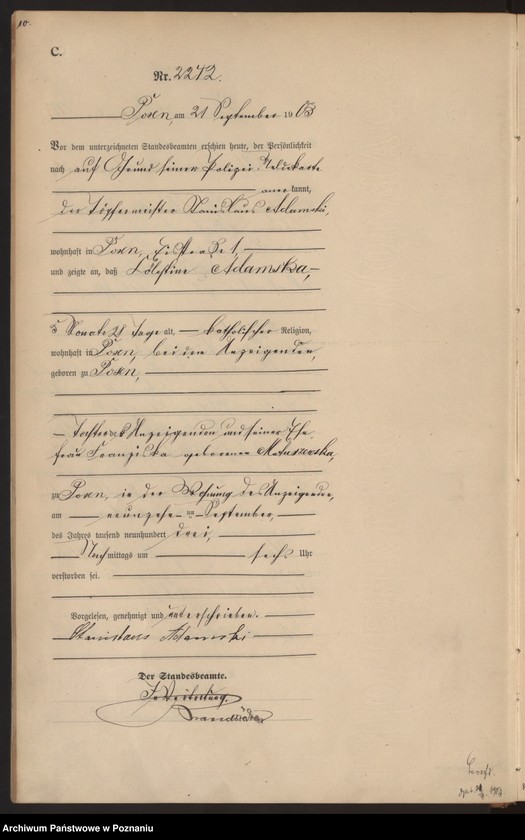 10.
C.
Nr. 2272.
Posen, am 21 September 1903
Vor dem unterzeichneten Standesbeamten erschien heute, der Persönlichkeit
nach auf Grund seiner Polizei Meldekarte
anerkannt,
der Töpfermeister Stanislaus Adamski,
wohnhaft in Posen, 1,
und zeigte an, daß Cölestine Adamska,
5 Monate 21 Tage alt, katholischer Religion,
wohnhaft in Posen, bei dem Anzeigenden,
geboren zu Posen,
Tochter des Anzeigenden und seiner Ehe
frau Franziska geborenen Matuszewska,
zu Posen, in der Wohnung des Anzeigenden,
am neunzehnten September,
des Jahres tausend neunhundert drei
Nachmittags um sechs Uhr
verstorben sei.
Vorgelesen, genehmigt und unterschrieben.
Stanislaus Adamski
Der Standesbeamte.
In Vertretung.
Archiwum Państwowe w Poznaniu